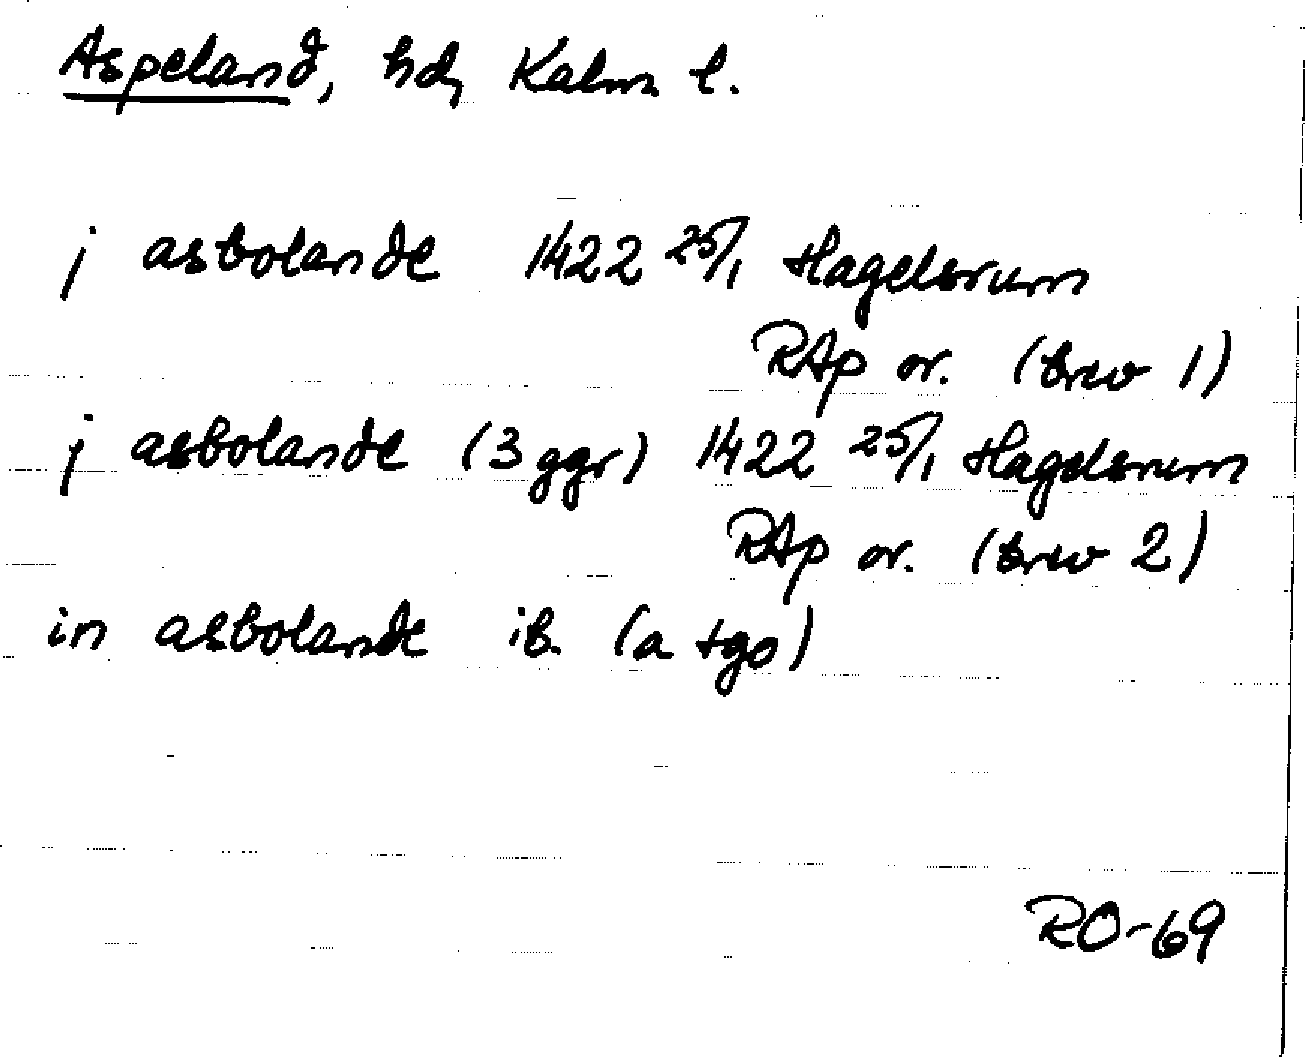 Aspeland, hd, Kalm. l.
j asbolande 1422 25/1 Hagelsrum
RAp or. (brev 1)
j asbolande (3 ggr) 1422 25/1 Hagelsrum
RAp or. (brev 2)
in asbolande ib. (a tgo)
RO-69